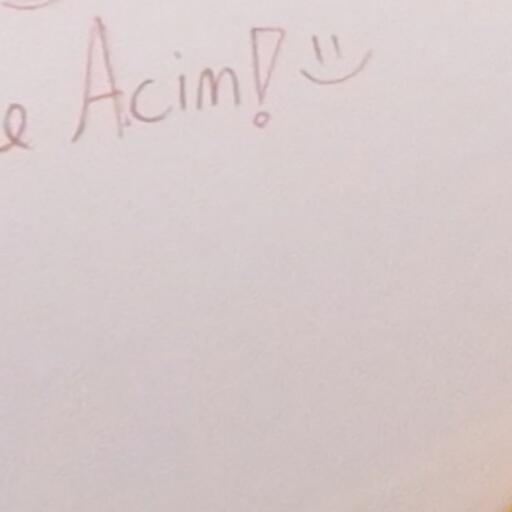 e Acim! =)